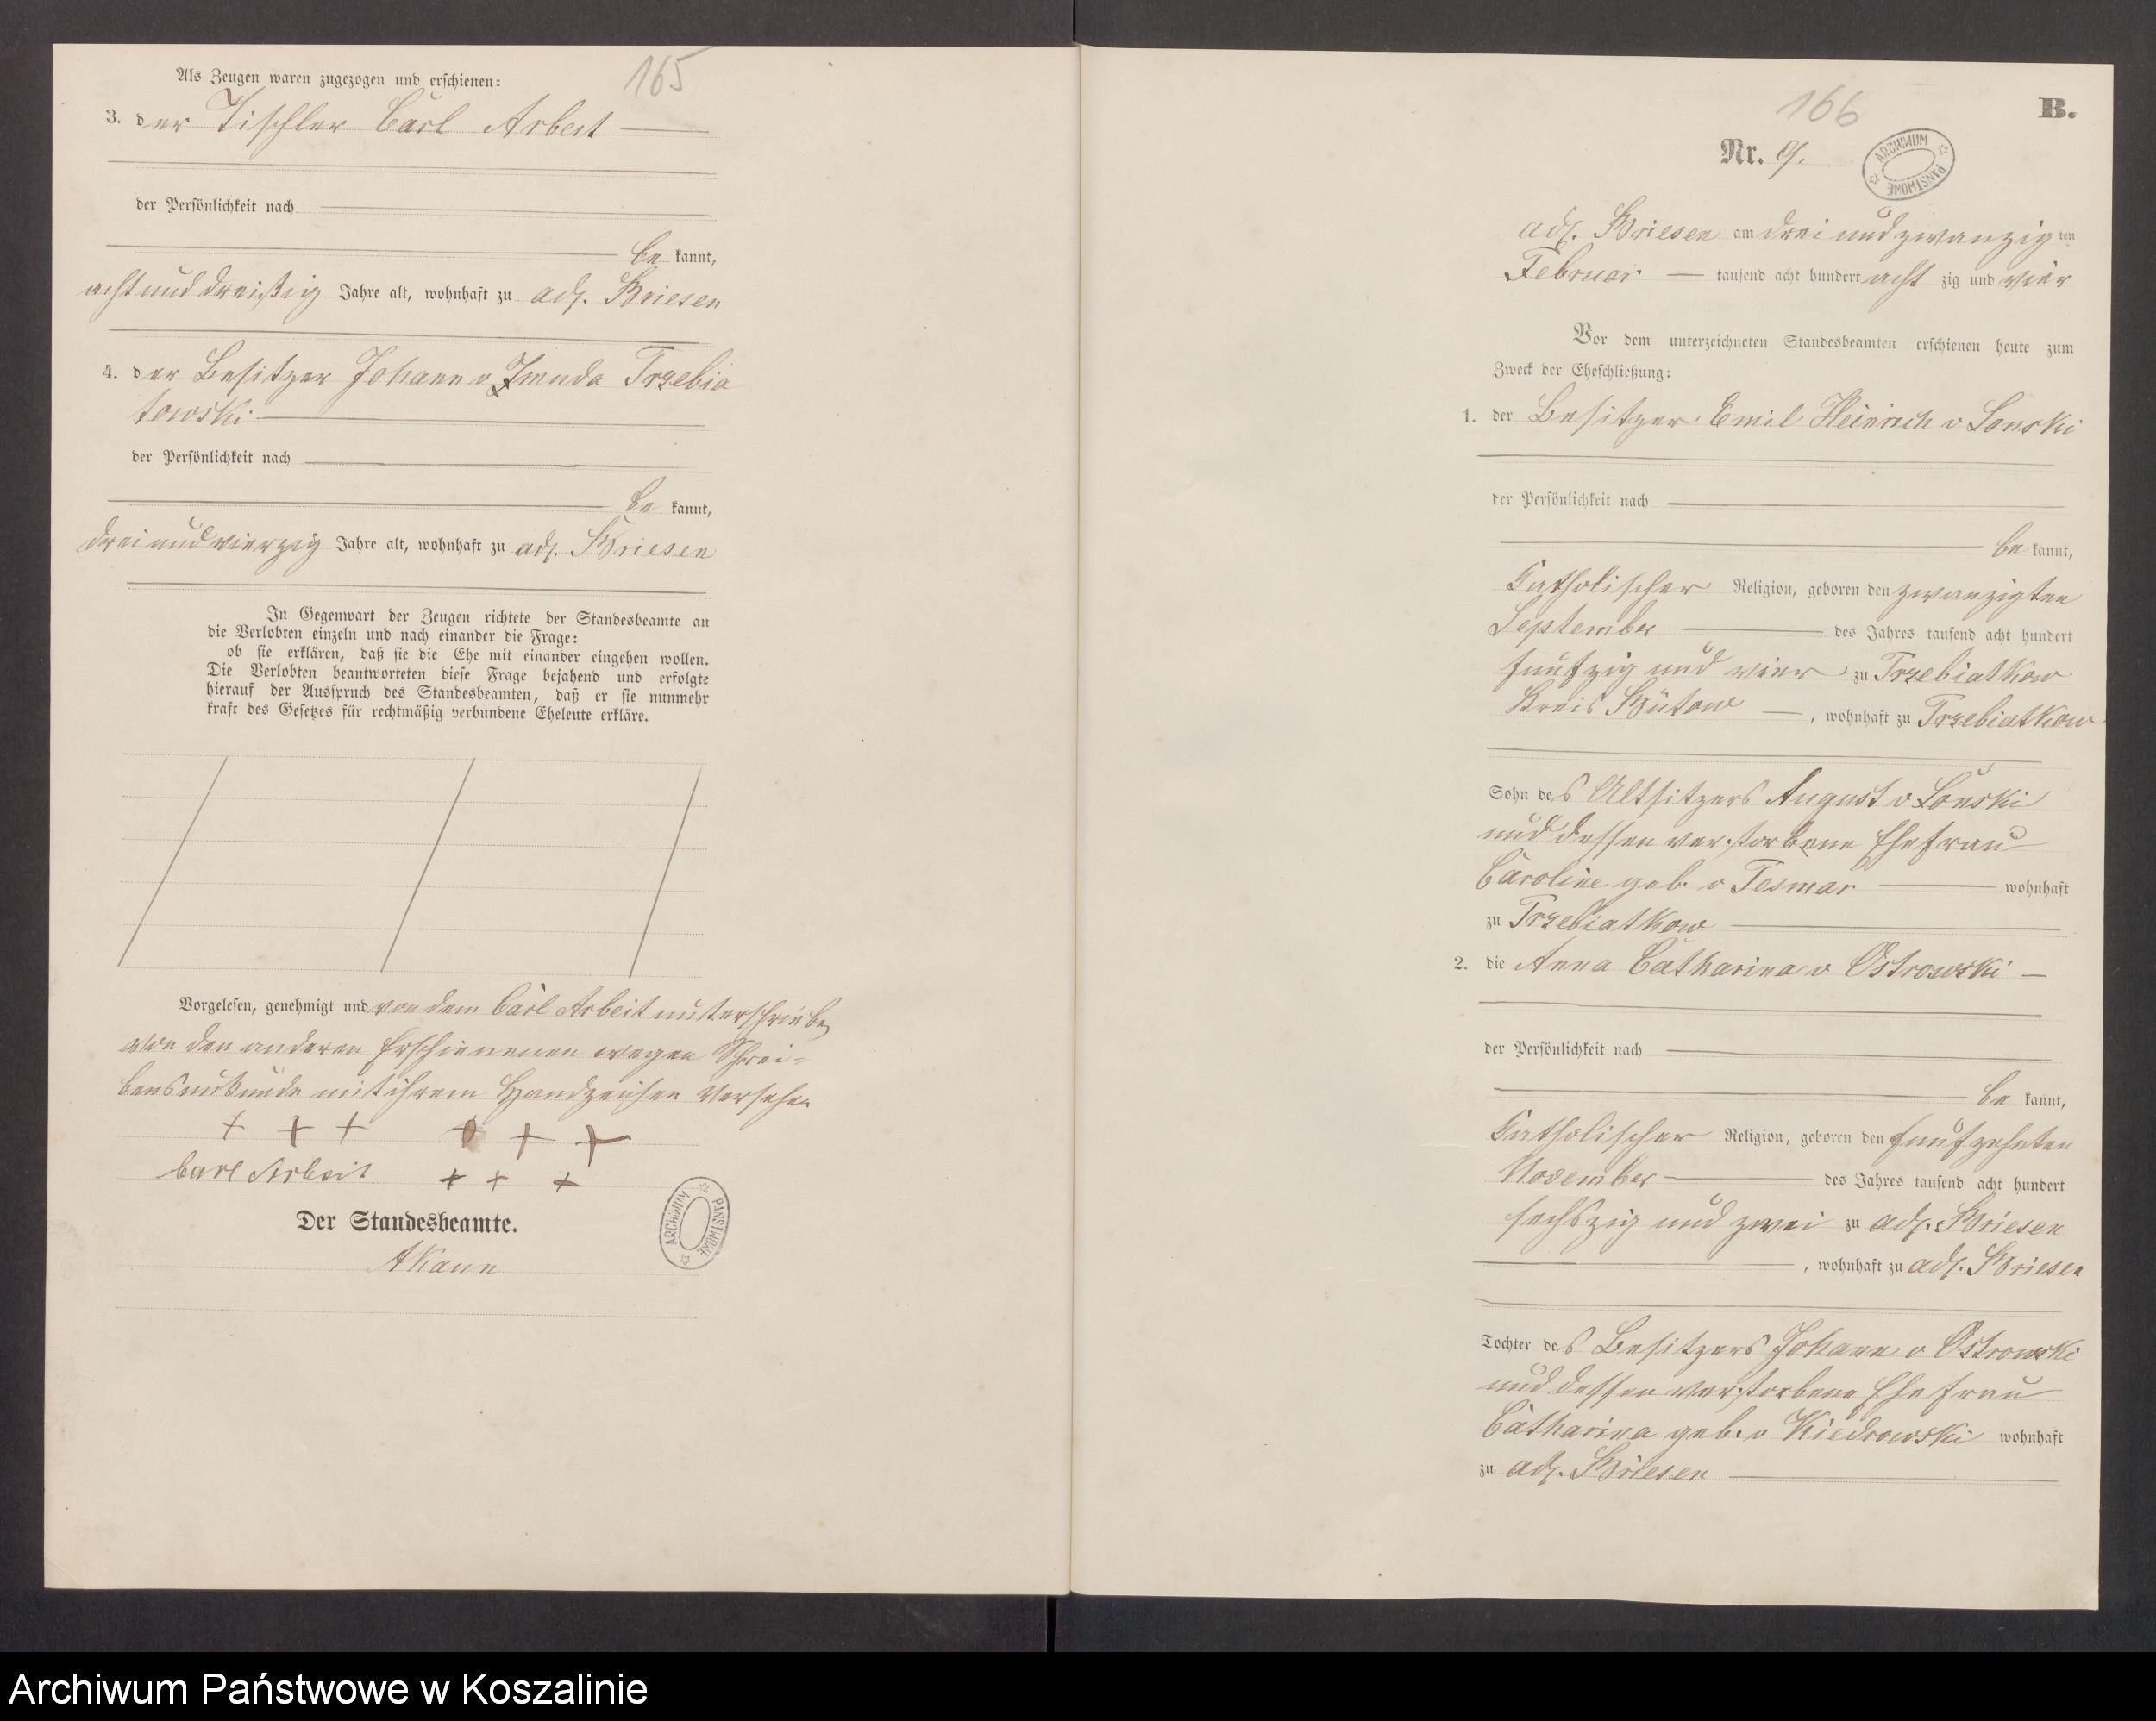 165
Als Zeugen waren zugezogen und erschienen:
3. der Tischler Carl Arbeit
der Persönlichkeit nach
be kannt,
achtunddreißig Jahre alt, wohnhaft zu adl. Briesen
4. der Besitzer Johann v Zmuda Trzebia
towski
der Persönlichkeit nach
be kannt,
dreiundvierzig Jahre alt, wohnhaft zu adl. Briesen
In Gegenwart der Zeugen richtete der Standesbeamte an
die Verlobten einzeln und nach einander die Frage:
ob sie erklären, daß sie die Ehe mit einander eingehen wollen.
Die Verlobten beantworteten diese Frage bejahend und erfolgte
hierauf der Ausspruch des Standesbeamten, daß er sie nunmehr
kraft des Gesetzes für rechtmäßig verbundene Eheleute erkläre.
Vorgelesen, genehmigt und von dem Carl Arbeit unterschrieben
von den anderen Erschienenen wegen Schrei-
bensunkunde mit ihrem Handzeichen versehen
+ + + + + +
Carl Arbeit + + +
Der Standesbeamte.
AKann
ARCHIWUM PAŃSTWOWE
166
B.
Nr. 9.
ARCHIWUM PAŃSTWOWE
adl. Briesen am dreiundzwanzig ten
Februar tausend acht hundert acht zig und vier
Vor dem unterzeichneten Standesbeamten erschienen heute zum
Zweck der Eheschließung:
1. der Besitzer Emil Heinrich v Lonski
der Persönlichkeit nach
be kannt,
Catholischer Religion, geboren den zwanzigten
September des Jahres tausend acht hundert
fünfzig und vier zu Trzebiatkow
Kreis Bütow , wohnhaft zu Trzebiatkow
Sohn des Altsitzers August v Lonski
und dessen verstorbene Ehefrau
Caroline geb. v Tesmar wohnhaft
zu Trzebiatkow
2. die Anna Catharina v Ostrowski
der Persönlichkeit nach
be kannt,
Catholischer Religion, geboren den fünfzehnten
November des Jahres tausend acht hundert
sechszig und zwei zu adl. Briesen
, wohnhaft zu adl. Briesen
Tochter des Besitzers Johann v Ostrowski
und dessen verstorbene Ehefrau
Catharina geb. v Kiedrowski wohnhaft
zu adl. Briesen
Archiwum Państwowe w Koszalinie